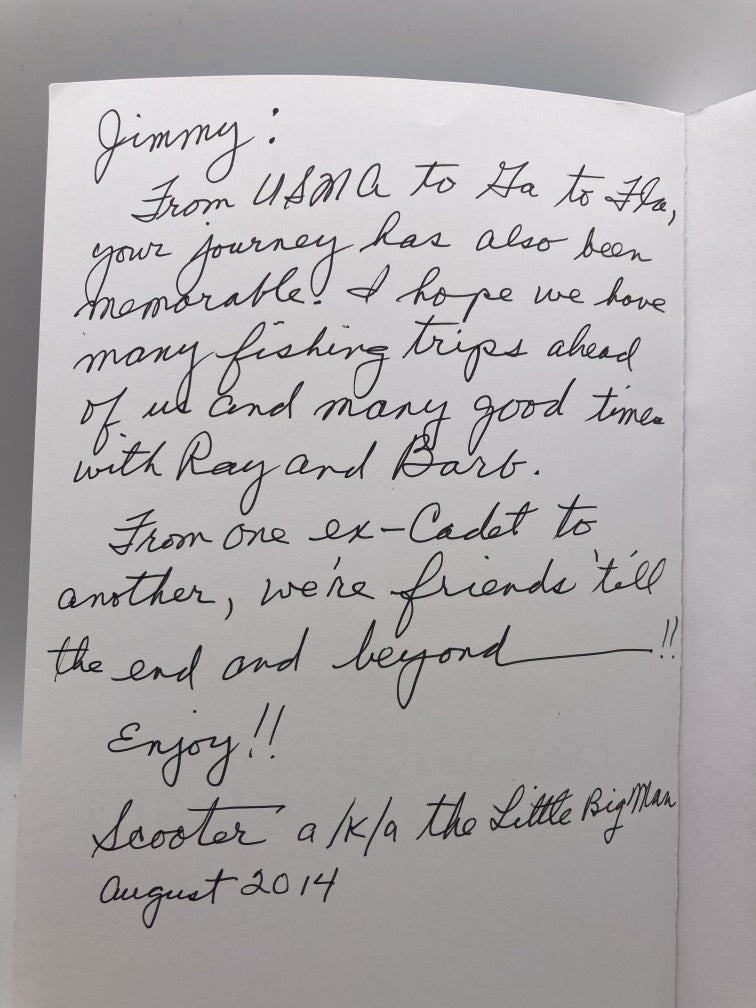 Jimmy:
From USMA to Ga to Fla,
your journey has also been
memorable. I hope we have
many fishing trips ahead
of us and many good times
with Ray and Barb.
From one ex-Cadet to
another, we're friends 'till
the end and beyond———!!
Enjoy!!
Scooter a/k/a the Little Big Man
August 2014